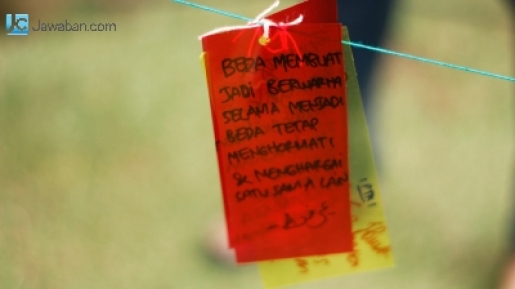 JC Jawaban.com
BEDA MEMBUAT
JADI BERWARNA
SELAMA MENJADI
BEDA TETAP
MENGHORMATI
& MENGHARGAI
SATU SAMA LAIN